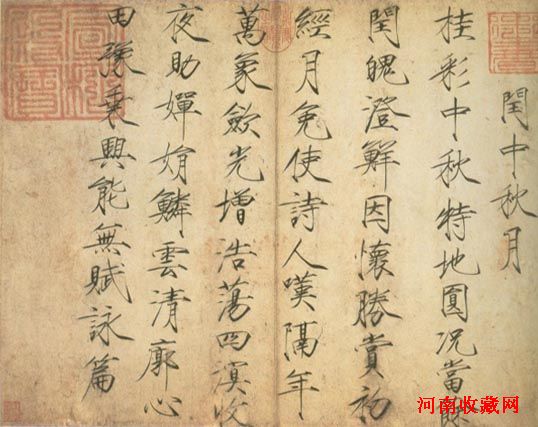 閏中秋月
桂彩中秋特地圓況當餘
閏魄澄鮮因懷勝賞初
經月免使詩人嘆隔年
萬象斂光增浩蕩四溟收
夜助嬋娟鱗雲清廓心
田豫乘興能無賦詠篇
河南收藏网